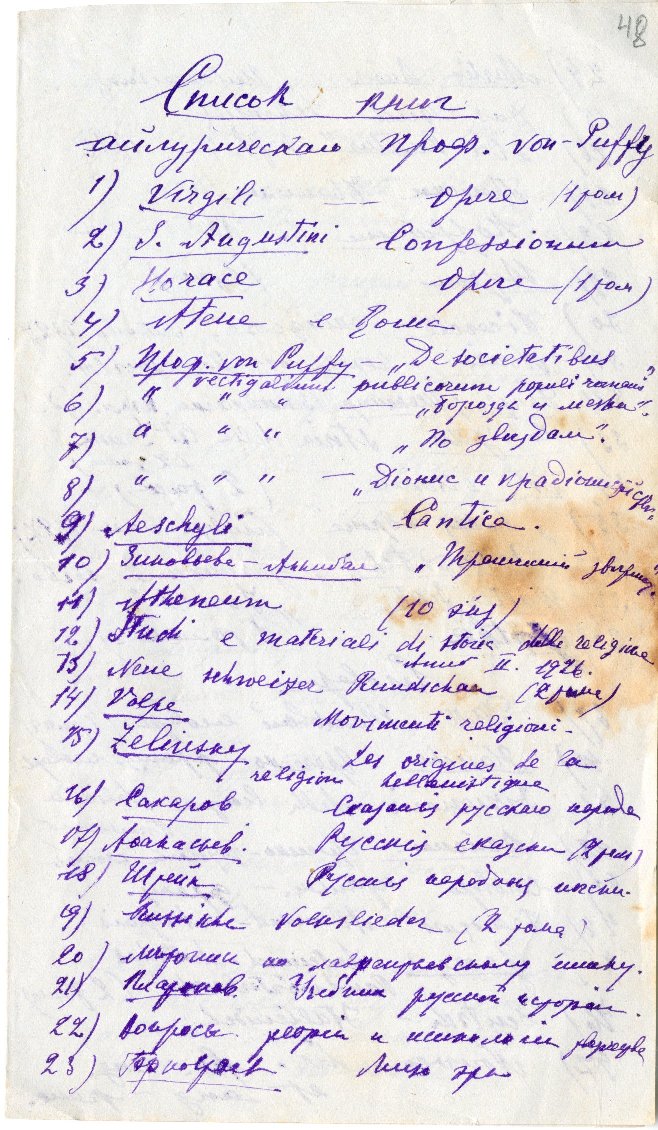 48
Список книг
айлурическаго проф. von-Puffy
1) Virgili — Opere (1 том)
2) S. Augustini Confessionum
3) Horace Opere (1 том)
4) Atene e Roma
5) Проф. von Puffy — „De societatibus
vectigalium publicorum populi romani"
6) " " " — „Борозды и межи".
7) " " " „По звездам".
8) " " " — „Дионис и прадионисийство"
9) Aeschyli Cantica.
10) Зиновьева-Аннибал „Трагический зверинец"
11) Atheneum (10 
12) Studi e materiali di storia delle religione
Anno II. 1926.
13) Neue schweizer Rundschau (2 тома)
14) Volpe Movimenti religiosi-
15) Zelinsky Les origines de la
religion hellenistique
16) Сахаров Сказания русскаго народа
17) Афанасьев. Русскія сказки (2 том)
18) Шейн Русскія народныя песни.
19) Russische Volkslieder (2 тома)
20) Летопись по лаврентьевскому списку.
21) Платонов. Учебник русской исторіи.
22) Вопросы теоріи и психологіи творчества
23) Терновскаго